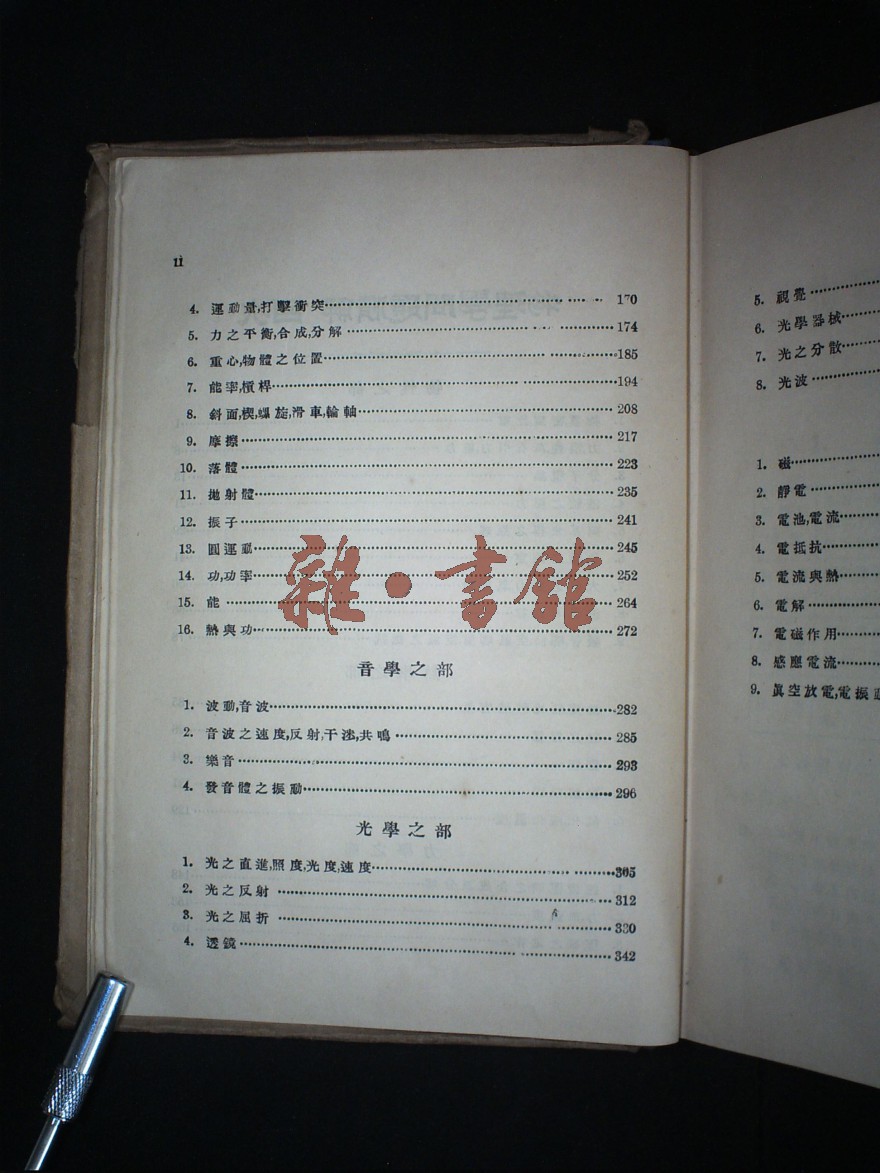 ii
4. 運動量,打擊衝突 170
5. 力之平衡,合成,分解 174
6. 重心,物體之位置 185
7. 能率,槓桿 194
8. 斜面,楔,螺旋,滑車,輪軸 208
9. 摩擦 217
10. 落體 223
11. 拋射體 235
12. 振子 241
13. 圓運動 245
14. 功,功率 252
15. 能 264
16. 熱與功 272
音學之部
1. 波動,音波 282
2. 音波之速度,反射,干涉,共鳴 285
3. 樂音 293
4. 發音體之振動 296
光學之部
1. 光之直進,照度,光度,速度 305
2. 光之反射 312
3. 光之屈折 330
4. 透鏡 342
雜·書館
5. 視覺
6. 光學器械
7. 光之分散
8. 光波
1. 磁
2. 靜電
3. 電池,電流
4. 電抵抗
5. 電流與熱
6. 電解
7. 電磁作用
8. 感應電流
9. 眞空放電,電振